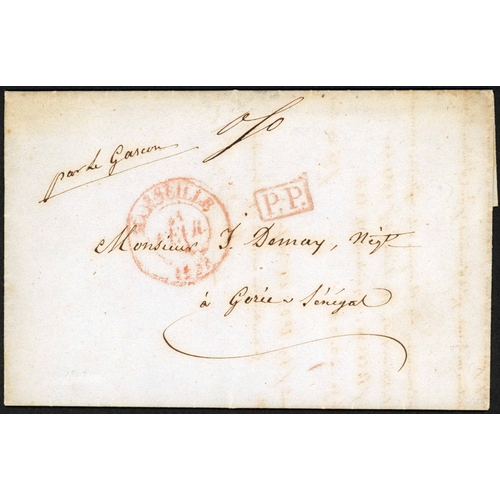 par Le Gascon
MARSEILLE
P.P.
Monsieur J. Demay, Négt
à Gorée Sénégal